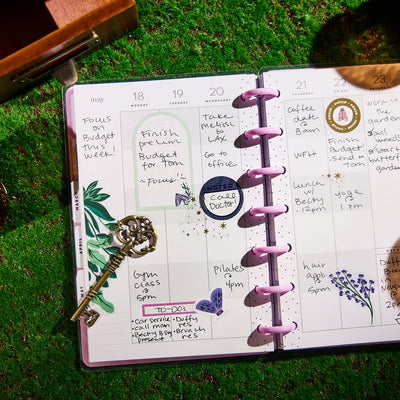 may
18
MONDAY
19
TUESDAY
20
WEDNESDAY
Focus
on
Budget
this
Week!
Finish
prelim
Budget
for Tom
~Focus!~
Take
melissa
to
LAX
Go to
office
NOTED
Call
Doctor!
MARCH
APRIL
Gym
class
@
5pm
Pilates
@
4pm
TO-DOs
•Car service
•call mom
•Becky B Day
present
•Duffy
res
•Brunch
res
21
THURSDAY
22
23
Coffee
date
@
8am
WFH
Lunch
w/
Becky
@
12pm
hair
appt
@
5pm
Finish
Budget
send to
Tom
yoga
@
1 pm
Work in
the
garden
start
butterfly
garden